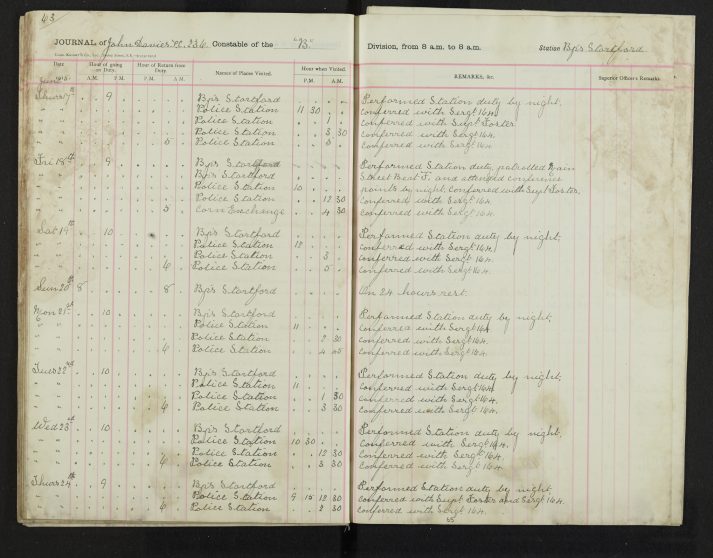 43
JOURNAL of John Davies P.C. 236. Constable of the "B" Division, from 8 a.m. to 8 a.m. Station Bp's Stortford
Date Hour of going on Duty. Hour of Return from Duty. Names of Places Visited. Hour when Visited. REMARKS, &c. Superior Officer's Remarks.
A.M. P.M. P.M. A.M. P.M. A.M.
Thurs 17th 9 Bp's Stortford Performed Station duty by night.
Police Station 11 30 Conferred with Sergt 164.
Police Station 1 Conferred with Supt Foster
Police Station 3 30 Conferred with Sergt 164.
5 Police Station 5 Conferred with Sergt 164.
Fri 18th 9 Bp's Stortford Performed Station duty, patrolled Main
Bp's Stortford Street Beat and attended conference
Police Station 10 points by night. Conferred with Supt Foster.
Police Station 12 30 Conferred with Sergt 164.
5 Corn Exchange 4 30 Conferred with Sergt 164.
Sat 19th 10 Bp's Stortford Performed Station duty by night.
Police Station 12 Conferred with Sergt 164.
Police Station 3 Conferred with Sergt 164.
6 Police Station 5 Conferred with Sergt 164.
Sun 20th 8 8 Bp's Stortford On 24 hours rest.
Mon 21st 10 Bp's Stortford Performed Station duty by night.
Police Station 11 Conferred with Sergt 164
Police Station 2 30 Conferred with Sergt 164.
4 Police Station 4 45 Conferred with Sergt 164.
Tues 22nd 10 Bp's Stortford Performed Station duty by night.
Police Station 11 Conferred with Sergt 164.
Police Station 1 30 Conferred with Sergt 164.
4 Police Station 3 30 Conferred with Sergt 164.
Wed 23rd 10 Bp's Stortford Performed Station duty by night.
Police Station 10 30 Conferred with Sergt 164.
Police Station 12 30 Conferred with Sergt 164.
4 Police Station 3 30 Conferred with Sergt 164.
Thurs 24th 9 Bp's Stortford Performed Station duty by night.
Police Station 9 15 12 30 Conferred with Supt Foster and Sergt 164.
6 Police Station 2 30 Conferred with Sergt 164.